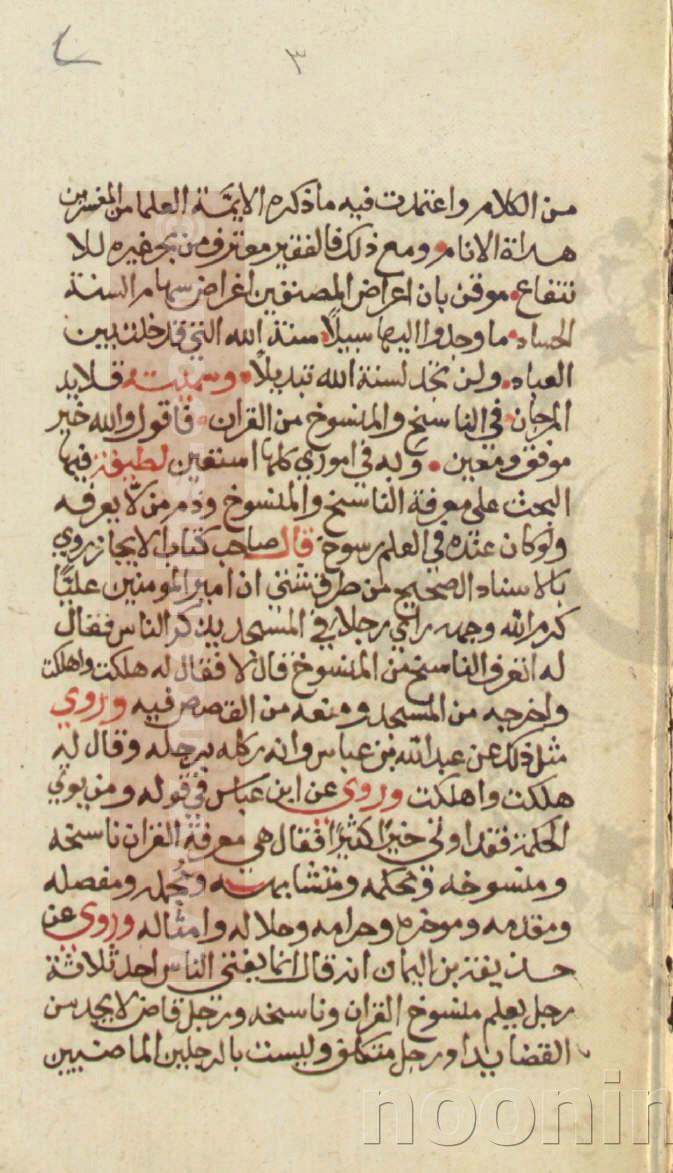 ٣
من الكلام واعتمدت فيه ما ذكره الايمة العلما من المفسرين
هداة الانام ومع ذلك فالفقير معترف من بحر غيره للا
نتفاع موقن بان اعراض المصنفين اغراض سهام السنة
الحساد ما وجدوا اليها سبيلا سنة الله التي قد خلت بين
العباد ولن تجد لسنة الله تبديلا وسميته قلايد
المرجان في الناسخ والمنسوخ من القران فاقول والله خير
موفق ومعين وبه في اموري كلها استعين لطيفة فيها
البحث على معرفة الناسخ والمنسوخ وذم من لا يعرفه
ولو كان عنده في العلم رسوخ قال صاحب كتاب الايجاز روي
بالاسناد الصحيح من طرق شتى ان امير المومنين عليا
كرم الله وجهه راي رجلا في المسجد يذكر الناس فقال
له اتعرف الناسخ من المنسوخ قال لا فقال له هلكت واهلكت
واخرجه من المسجد ومنعه من القصص فيه وروي
مثل ذلك عن عبد الله بن عباس وانه ركله برجله وقال له
هلكت واهلكت وروي عن ابن عباس في قوله ومن يوتي
الحكمة فقد اوتي خيرا كثيرا فقال هي معرفة القران ناسخه
ومنسوخه ومحكمه ومتشابهه ومجمله ومفصله
ومقدمه وموخره وحرامه وحلاله وامثاله وروي عن
حذيفة بن اليمان انه قال انما يفتي الناس احد ثلاثة
رجل يعلم منسوخ القران وناسخه ورجل قاض لا يجد من
القضا بدا ورجل متكلف وليست بالرجلين الماضيين
noonin